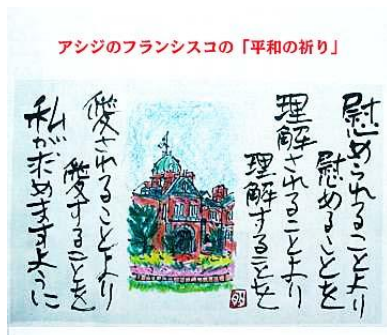 アシジのフランシスコの「平和の祈り」
慰められることより
慰めることを
理解されることより
理解することを
愛されることより
愛することを
私が求めますように